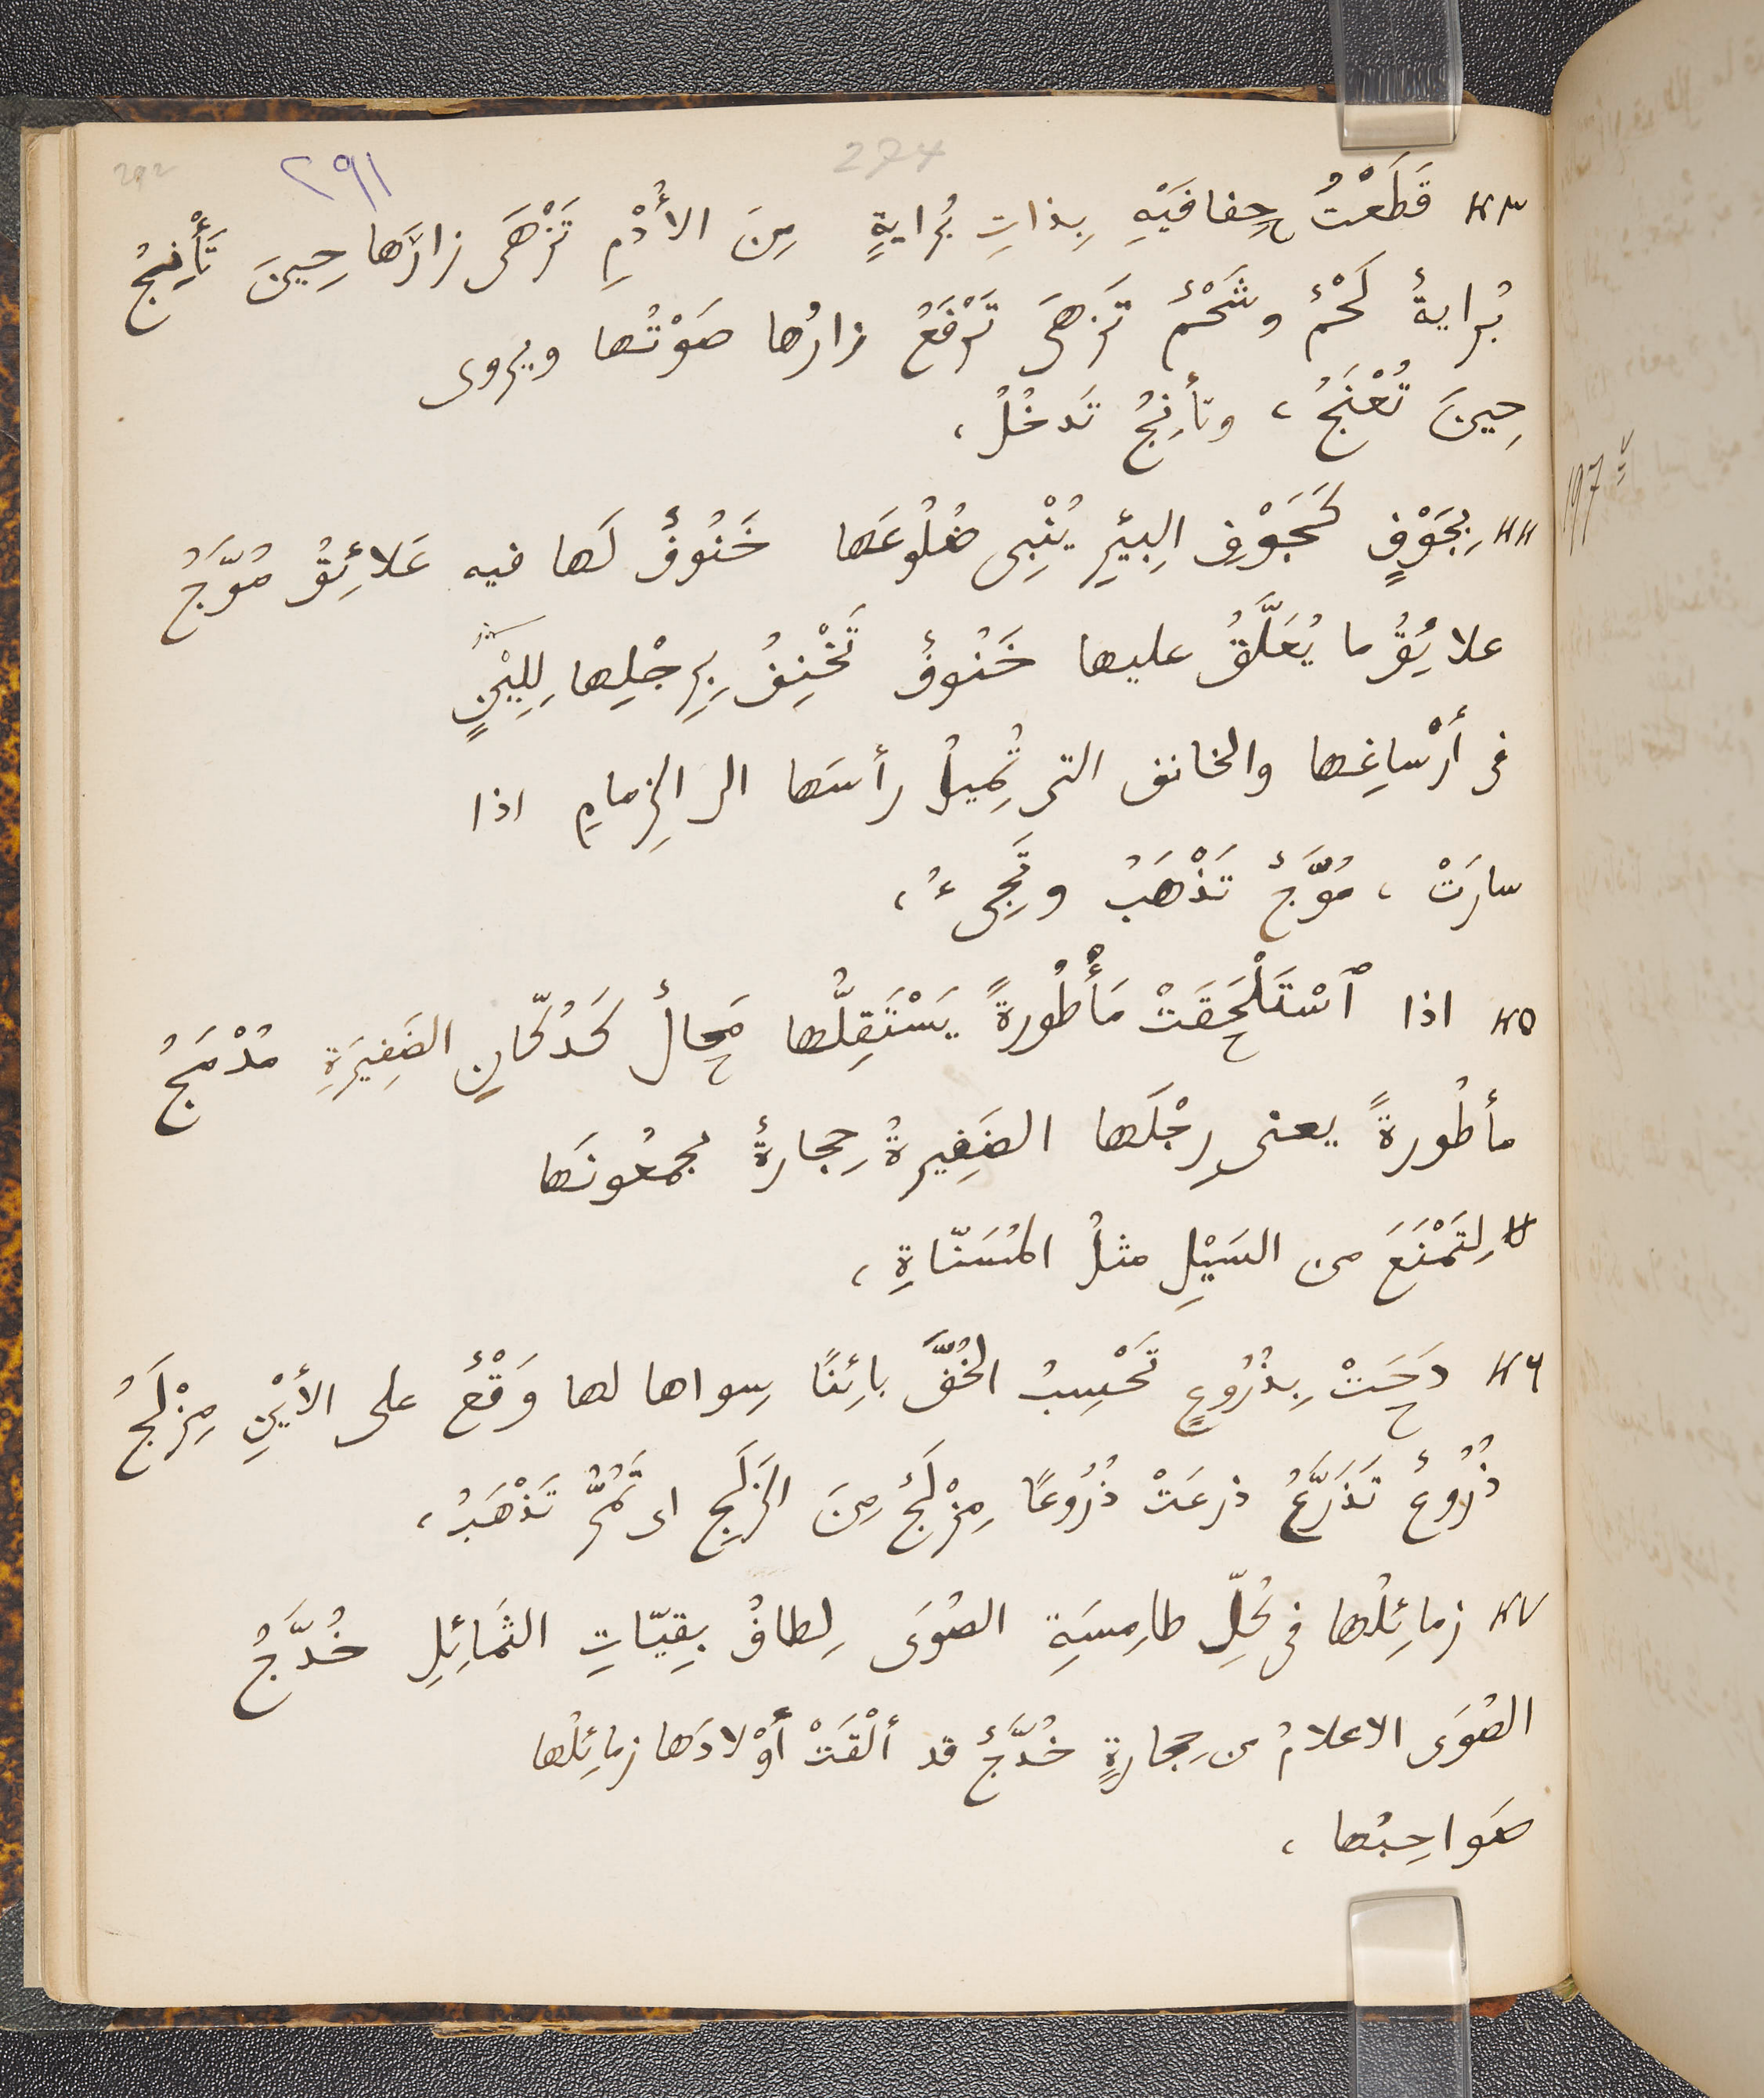 292 ٢٩١ 274
٤٣ قَطَعْتُ حِفافَيْهِ بِذاتِ بُرايةٍ مِنَ الأُدْمِ تَزْهَى زارَها حِينَ تَأْنِجُ
بُرايةٌ لَحْمٌ وشَحْمٌ تَزهَى تَرْفَعُ زارُها صَوْتُها ويروى
حِينَ تُعْنَجُ، وتأنِجُ تَدخُلُ،
٤٤ بِجَوْفٍ كَجَوْفِ البِئرِ يُنْبِى ضُلُوعَها خَنُوفٌ لَها فيه عَلائِقُ مُوَّجُ
علائِقُ ما يُعَلَّقُ عليها خَنُوفٌ تَخْنِفُ بِرِجْلِها لِلِيْنٍ
فى أرْساغِها والخانف التى تُمِيلُ رأسَها الى الزِمامِ اذا
سارَتْ، مُوَّجٌ تَذْهَبُ وتَجِىءُ،
٤٥ اذا ٱسْتَلْحَقَتْ مَأْطُورةً يَسْتَقِلُّها مَحالٌ كَدُكّانِ الضَفِيرَةِ مُدْمَجُ
مأطُورةً يعنى رِجْلَها الضَفِيرةُ حِجارةٌ يجمعُونَها
لِتَمْنَعَ من السَيْلِ مثلُ المُسَنّاةِ،
٤٦ دَحَتْ بِذُرُوعٍ تَحْسِبُ الخُفَّ بائِنًا سِواها لها وَقْعٌ على الأَيْنِ مِزْلَجُ
ذُرُوعٌ تَذَرَّعُ ذرعَتْ ذُرُوعًا مِزْلَجٌ مِنَ الزَلَجِ اى تَمُرُّ تَذْهَبُ،
٤٧ زمائِلُها فى كُلِّ طامِسَةِ الصُوَى لِطافٌ بِقِيّاتِ الثَمائِلِ خُدَّجُ
الصُوَى الاعلامُ من حِجارةٍ خُدَّجٌ قد ألْقَتْ أوْلادَها زمائِلُها
صَواحِبُها،
197 v